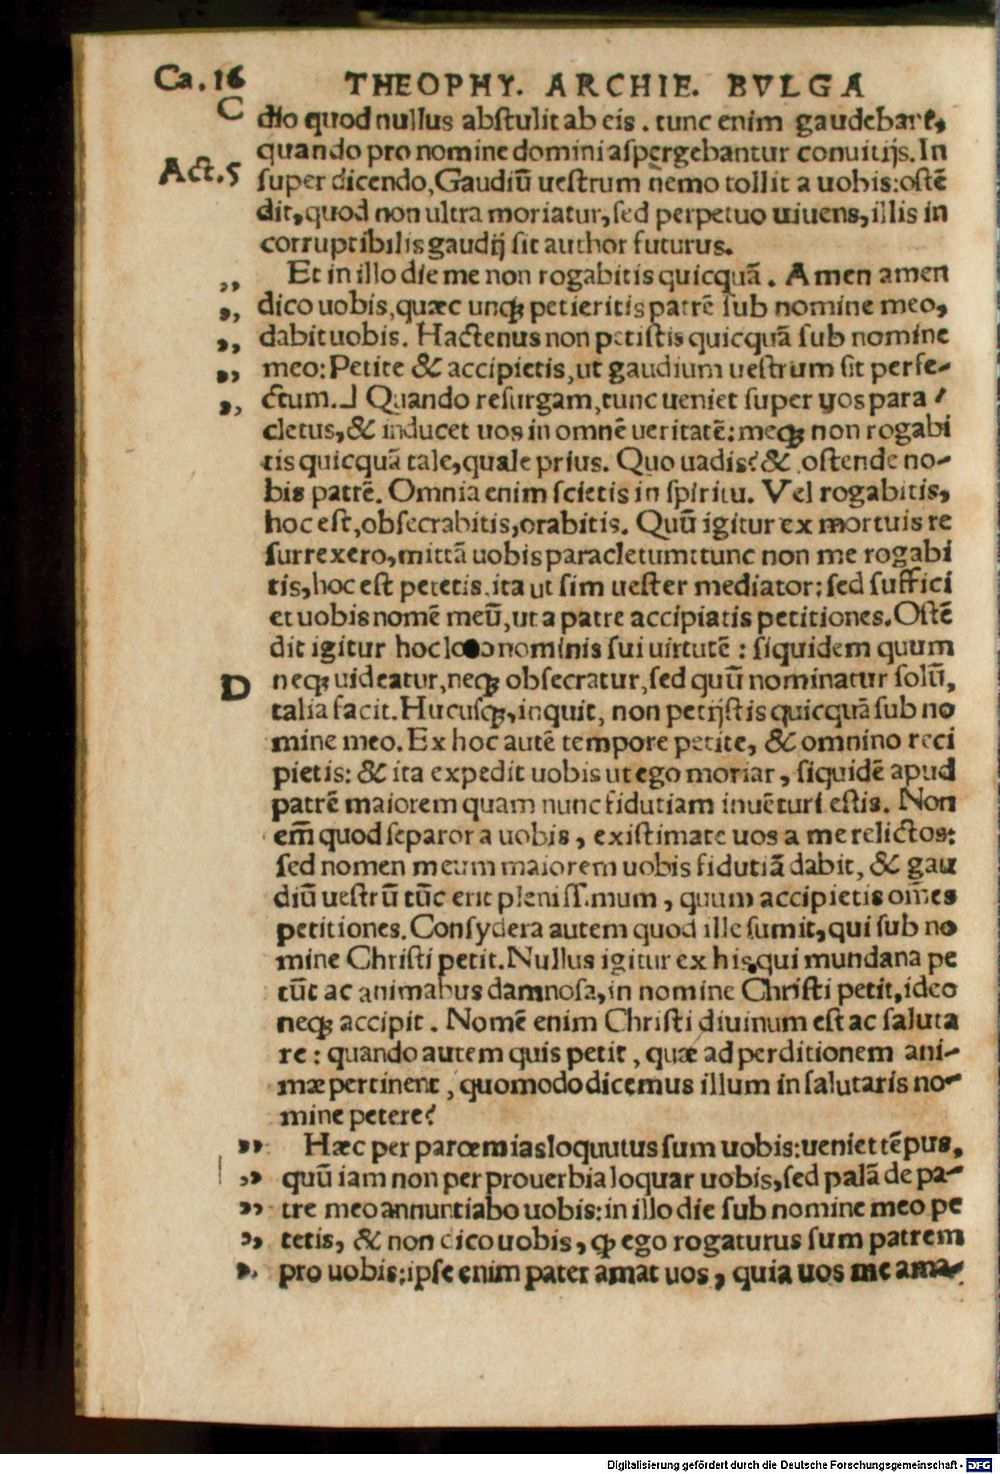 Ca. 16
THEOPHY. ARCHIE. BVLGA
C
dio quod nullus abſtulit ab eis. tunc enim gaudebãt,
quando pro nomine domini aſpergebantur conuitijs. In
Act. 5
ſuper dicendo, Gaudiũ ueſtrum nemo tollit a uobis: oſtẽ
dit, quod non ultra moriatur, ſed perpetuo uiuens, illis in
corruptibilis gaudij ſit author futurus.
,, Et in illo die me non rogabitis quicquã. Amen amen
,, dico uobis, quæc unqꝫ petieritis patrẽ ſub nomine meo,
,, dabit uobis. Hactenus non petiſtis quicquã ſub nomine
,, meo: Petite & accipietis, ut gaudium ueſtrum ſit perfe-
,, ctum.] Quando reſurgam, tunc ueniet ſuper uos para /
cletus, & inducet uos in omnẽ ueritatẽ: meqꝫ non rogabi
tis quicquã tale, quale prius. Quo uadis? & oſtende no-
bis patrẽ. Omnia enim ſcietis in ſpiritu. Vel rogabitis,
hoc eſt, obſecrabitis, orabitis. Quũ igitur ex mortuis re
ſurrexero, mittã uobis paracletum: tunc non me rogabi
tis, hoc eſt petetis, ita ut ſim ueſter mediator: ſed ſuffici
et uobis nomẽ meũ, ut a patre accipiatis petitiones. Oſtẽ
dit igitur hoc loco nominis ſui uirtutẽ: ſiquidem quum
D
neqꝫ uideatur, neqꝫ obſecratur, ſed quũ nominatur ſolũ,
talia facit. Hucuſqꝫ, inquit, non petijſtis quicquã ſub no
mine meo. Ex hoc autẽ tempore petite, & omnino reci
pietis: & ita expedit uobis ut ego moriar, ſiquidẽ apud
patrẽ maiorem quam nunc fidutiam inuẽturi eſtis. Non
em̃ quod ſeparor a uobis, exiſtimate uos a me relictos:
ſed nomen meum maiorem uobis fidutiã dabit, & gau
diũ ueſtrũ tũc erit pleniſſimum, quum accipietis om̃es
petitiones. Conſydera autem quod ille ſumit, qui ſub no
mine Chriſti petit. Nullus igitur ex his, qui mundana pe
tũt ac animabus damnoſa, in nomine Chriſti petit, ideo
neqꝫ accipit. Nomẽ enim Chriſti diuinum eſt ac ſaluta
re: quando autem quis petit, quæ ad perditionem ani-
mæ pertinent, quomodo dicemus illum in ſalutaris no-
mine petere?
,, Hæc per parœmias loquutus ſum uobis: ueniet tẽpus,
,, quũ iam non per prouerbia loquar uobis, ſed palã de pa-
,, tre meo annuntiabo uobis: in illo die ſub nomine meo pe
,, tetis, & non dico uobis, ꝙ ego rogaturus ſum patrem
,, pro uobis: ipſe enim pater amat uos, quia uos me ama-
Digitalisierung gefördert durch die Deutsche Forschungsgemeinschaft - DFG